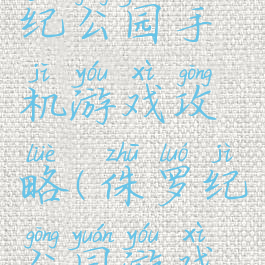 纪公园手
jī yóu xì gōng
机游戏攻
lüè zhū luó jì
略(侏罗纪
gōng yuán yóu xì
公园游戏